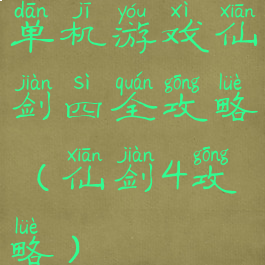 dān jī yóu xì xiān
单机游戏仙
jiàn sì quán gōng lüè
剑四全攻略
xiān jiàn gōng
(仙剑4攻
lüè
略)